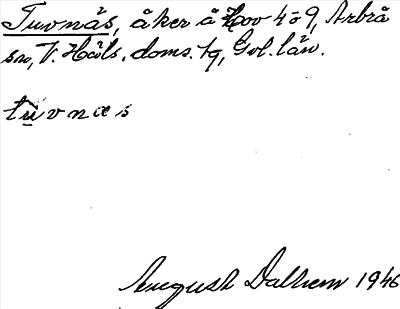 Tuvnäs, åker å Hov 4 o 9, Arbrå
sn, V. Häls. doms. tg, Gvl. län.
tüvnæs
August Dalhem 1946